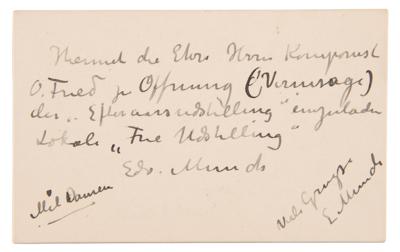 Hiermit die Ehre Herrn Komponist
O. Fried zu Öffnung (Vernisage)
der „Efteraarsudstilling" einzuladen
Lokale „Frie Udstilling"
Edv. Munch
Mit Damen
Viele Grüsse
E. Munch